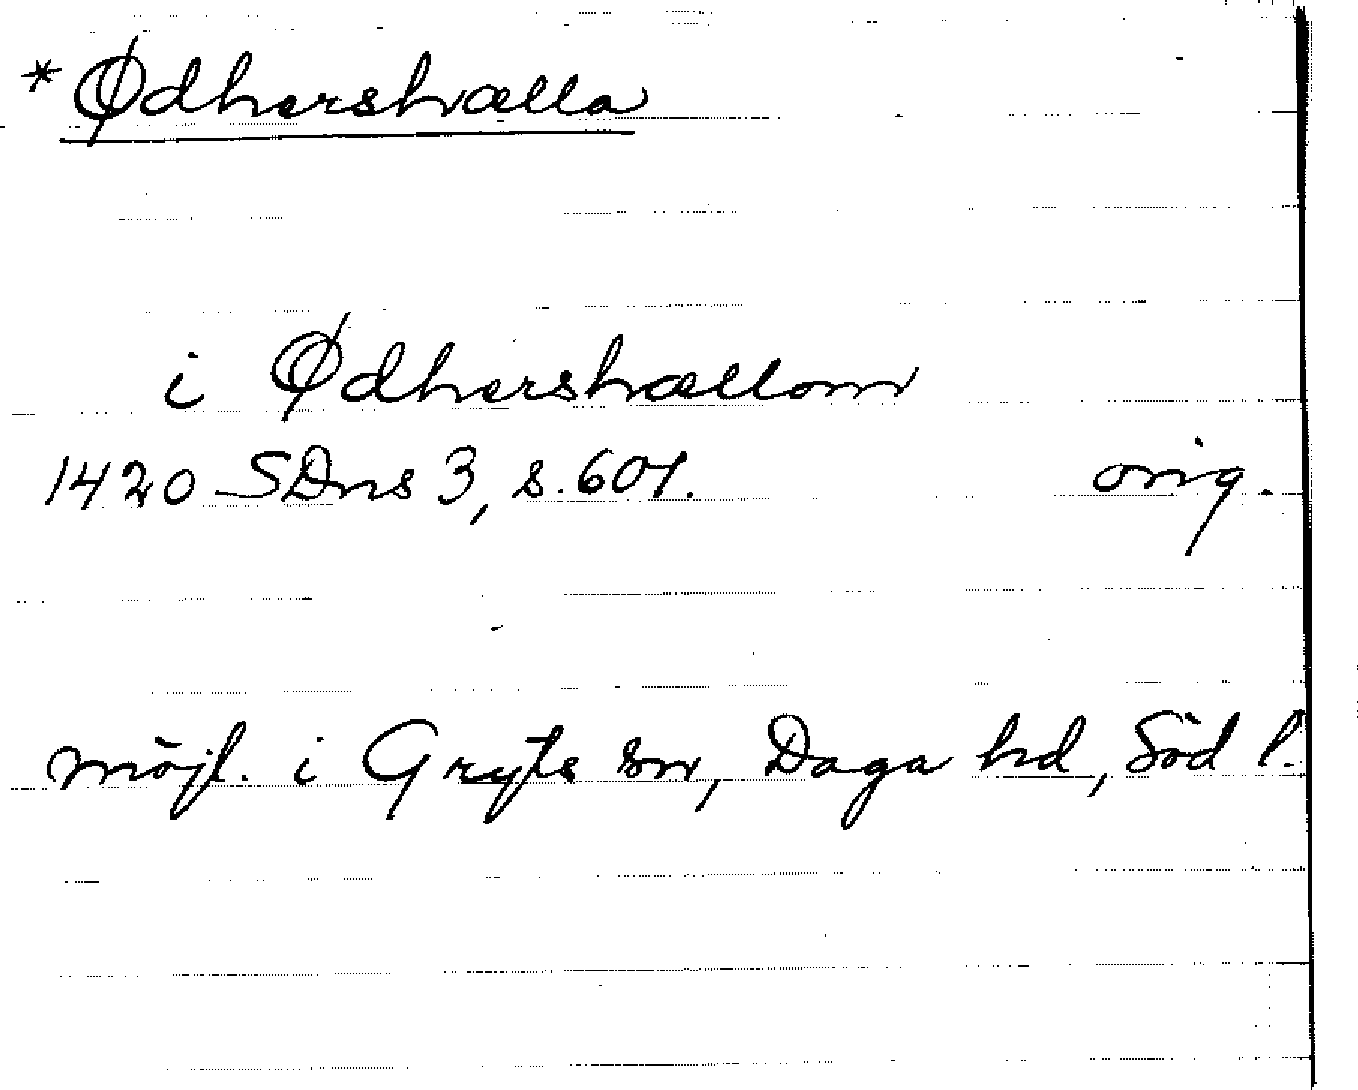 *Ødhershvælla
i Ødhershvællom
1420 SDns 3, s. 601. orig.
möjl. i Gryts sn, Daga hd, Söd l.